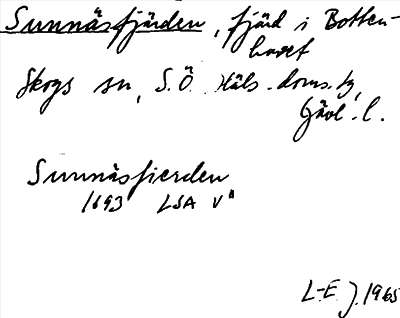 Sunnäsfjärden, fjärd i Botten-
havet
Skogs sn, S.Ö. Häls. doms. tg,
Gävl. l.
Sunnäsfierden
1693 LSA V¹¹
L-E J. 1965